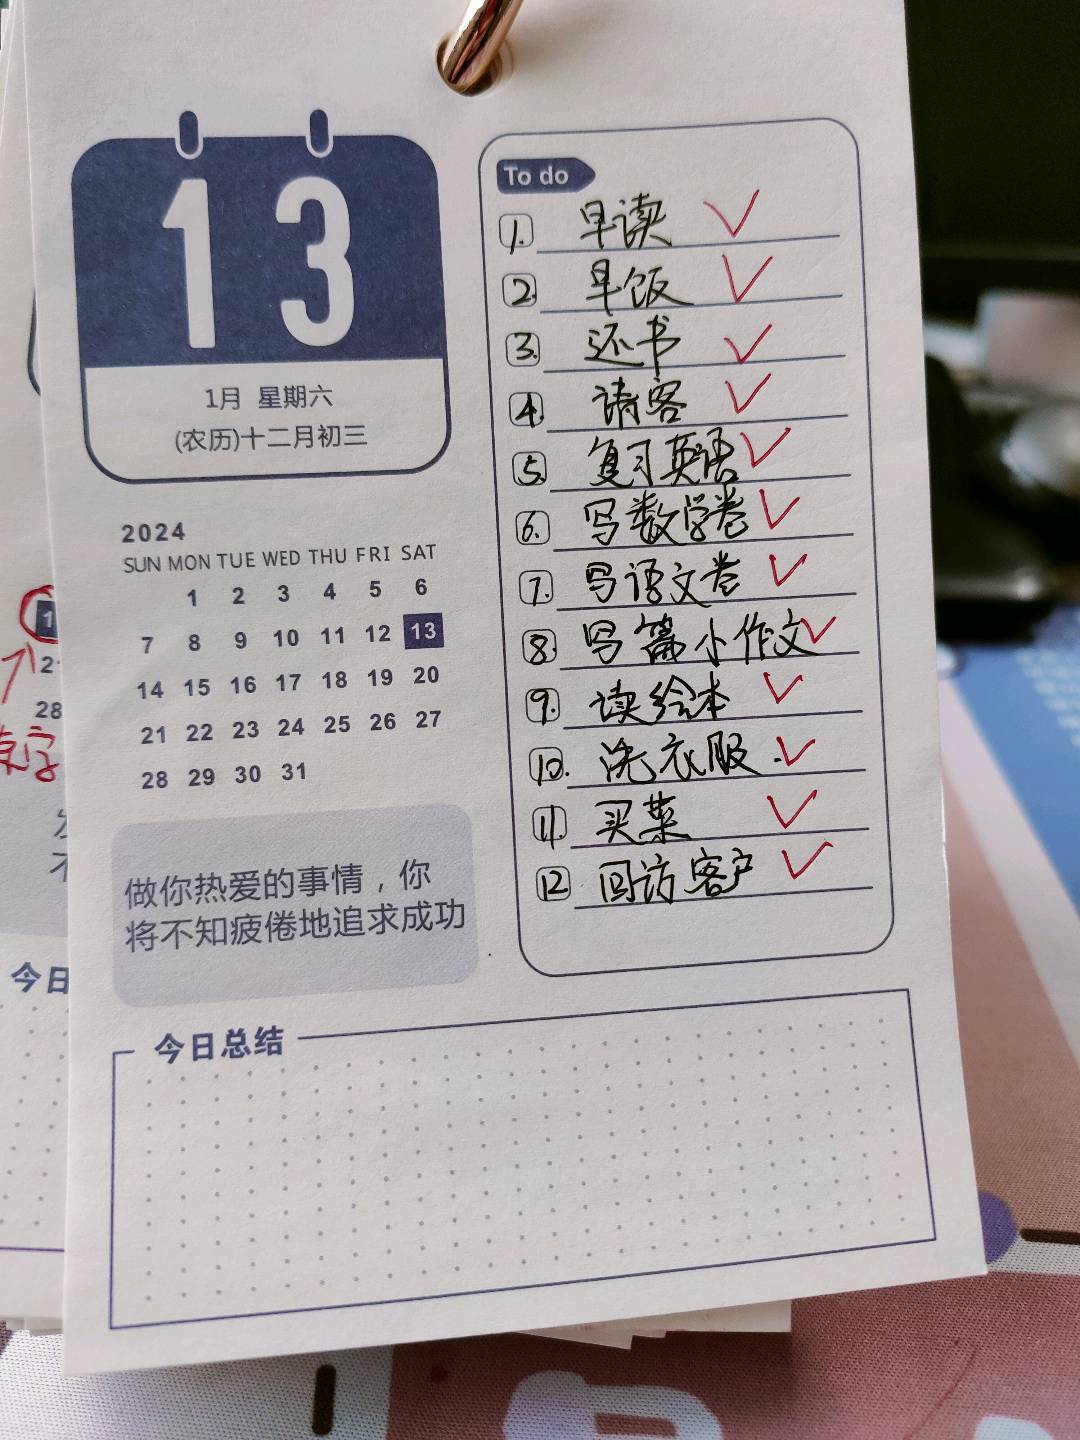 13
1月 星期六
(农历)十二月初三
2024
SUN MON TUE WED THU FRI SAT
1 2 3 4 5 6
7 8 9 10 11 12 13
14 15 16 17 18 19 20
21 22 23 24 25 26 27
28 29 30 31
做你热爱的事情，你
将不知疲倦地追求成功
To do
1. 早读
2. 早饭
3. 还书
4. 请客
5. 复习英语
6. 写数学卷
7. 写语文卷
8. 写篇小作文
9. 读绘本
10. 洗衣服.
11. 买菜
12 回访客户
今日总结
28
今日